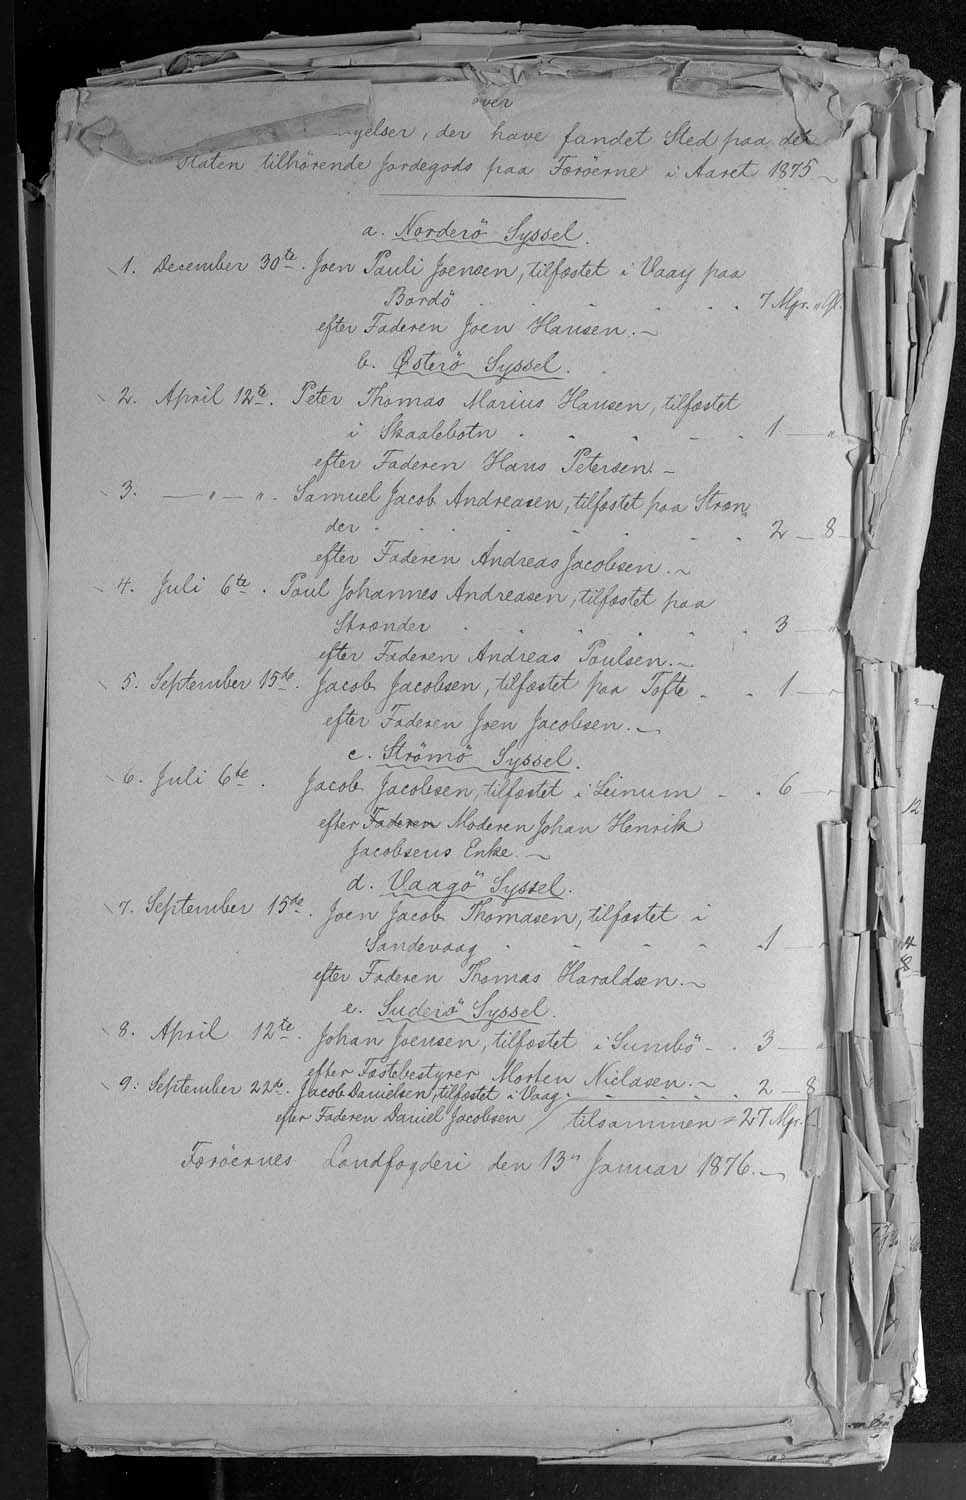 over
yelser, der have fundet Sted paa det
Staten tilhörende Jordegods paa Færöerne i Aaret 1875
a. Norderö Syssel.
1. December 30te. Joen Pauli Joensen, tilfæstet i Vaag paa
Bordö . . . . . 7 Mgr. „ Gl.
efter Faderen Joen Hansen.
b. Østerö Syssel.
2. April 12te. Peter Thomas Marius Hansen, tilfæstet
i Skaalebotn . . . . . 1 — „
efter Faderen Hans Petersen.
3. — „ — „. Samuel Jacob Andreasen, tilfæstet paa Stræn„
der . . . . . . . 2 — 8 —
efter Faderen Andreas Jacobsen.
4. Juli 6te. Poul Johannes Andreasen, tilfæstet paa
Strænder . . . . . . 3 — „
efter Faderen Andreas Poulsen.
5. September 15de. Jacob Jacobsen, tilfæstet paa Tofte . . 1 —
efter Faderen Joen Jacobsen.
c. Strömö Syssel.
6. Juli 6te. Jacob Jacobsen, tilfæstet i Leinum . . 6 —
efter Faderen Moderen Johan Henrik
Jacobsens Enke.
d. Vaagö Syssel.
7. September 15de. Joen Jacob Thomasen, tilfæstet i
Sandevaag . . . . . 1 — „
efter Faderen Thomas Haraldsen.
e. Suderö Syssel.
8. April 12te. Johan Joensen, tilfæstet i Sumbö . . 3 — „
efter Fæstebestyrer Morten Niclasen.
9. September 22de. Jacob Danielsen, tilfæstet i Vaag . . . . . 2 — 8
efter Faderen Daniel Jacobsen / tilsammen = 27 Mgr.
Færöernes Landfogderi den 13" Januar 1876.
12
8